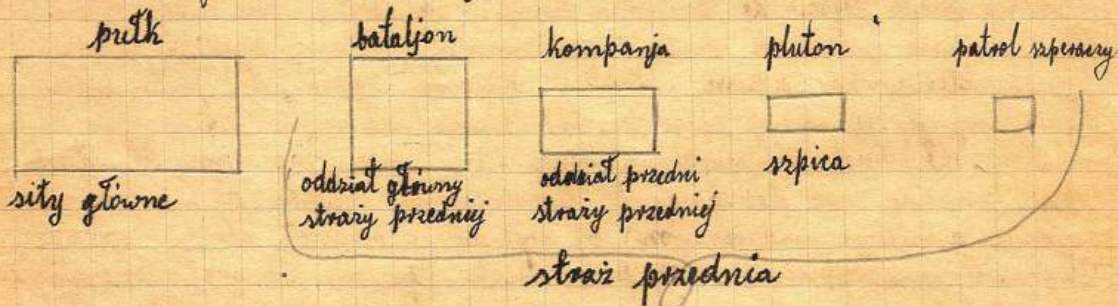 pułk
bataljon
kompanja
pluton
patrol szperaczy
siły główne
oddział główny
straży przedniej
oddział przedni
straży przedniej
szpica
straż przednia